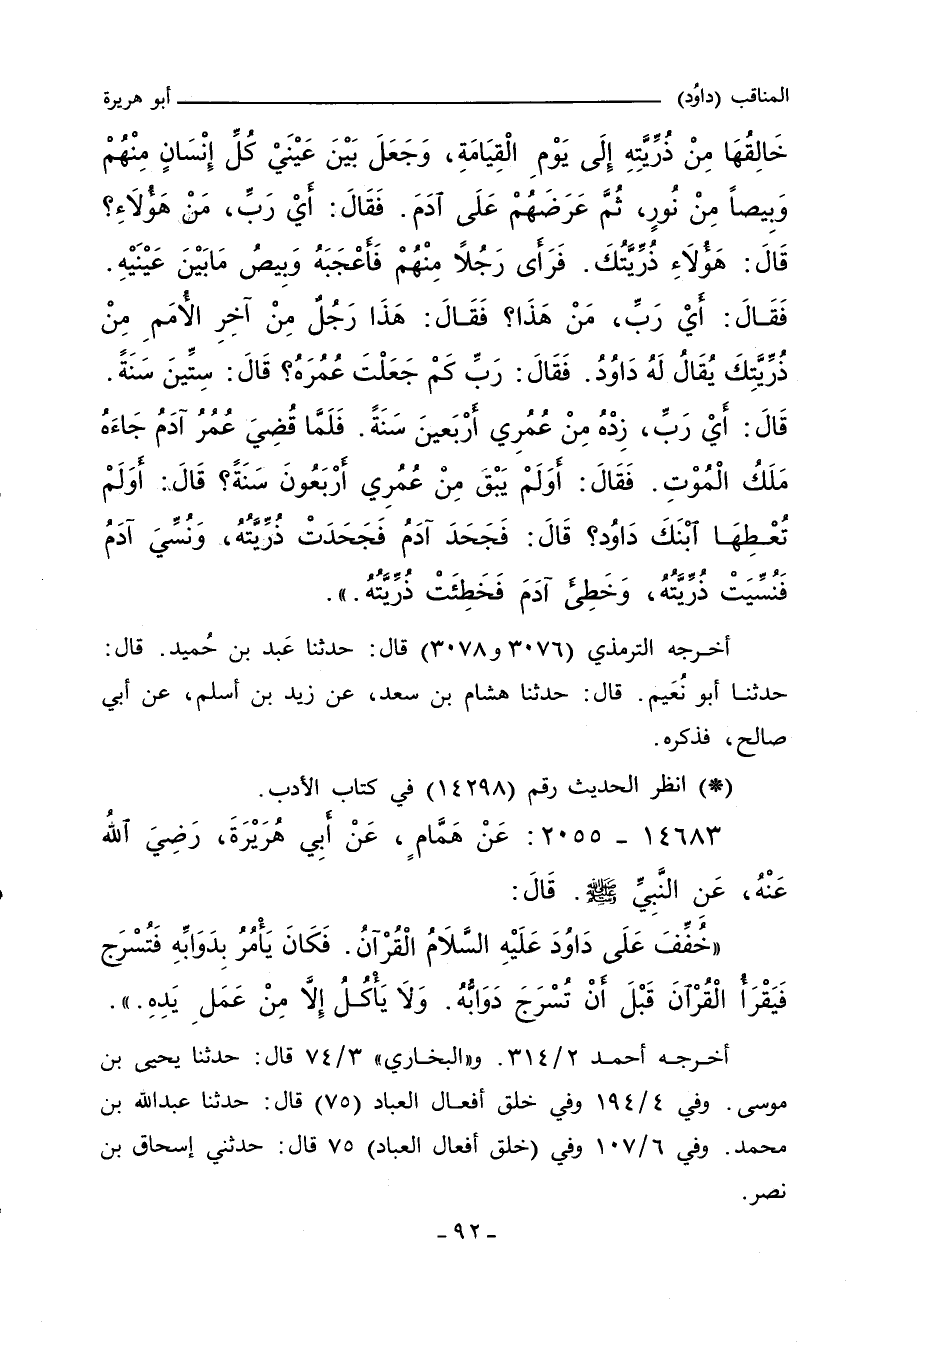 المناقب (داوُد) ــــــــــــــــــــــــــــــــــــــــ أبو هريرة
خَالِقُهَا مِنْ ذُرِّيَّتِهِ إِلَى يَوْمِ الْقِيَامَةِ، وَجَعَلَ بَيْنَ عَيْنَيْ كُلِّ إِنْسَانٍ مِنْهُمْ
وَبِيصاً مِنْ نُورٍ، ثُمَّ عَرَضَهُمْ عَلَى آدَمَ. فَقَالَ: أَيْ رَبِّ، مَنْ هَؤُلَاءِ؟
قَالَ: هَؤُلَاءِ ذُرِّيَّتُكَ. فَرَأَى رَجُلاً مِنْهُمْ فَأَعْجَبَهُ وَبِيصُ مَابَيْنَ عَيْنَيْهِ.
فَقَالَ: أَيْ رَبِّ، مَنْ هَذَا؟ فَقَالَ: هَذَا رَجُلٌ مِنْ آخِرِ الْأُمَمِ مِنْ
ذُرِّيَّتِكَ يُقَالُ لَهُ دَاوُدُ. فَقَالَ: رَبِّ كَمْ جَعَلْتَ عُمُرَهُ؟ قَالَ: سِتِّينَ سَنَةً.
قَالَ: أَيْ رَبِّ، زِدْهُ مِنْ عُمُرِي أَرْبَعِينَ سَنَةً. فَلَمَّا قُضِيَ عُمُرُ آدَمَ جَاءَهُ
مَلَكُ الْمُوْتِ. فَقَالَ: أَوَلَمْ يَبْقَ مِنْ عُمُرِي أَرْبَعُونَ سَنَةً؟ قَالَ: أَوَلَمْ
تُعْطِهَا ٱبْنَكَ دَاوُدَ؟ قَالَ: فَجَحَدَ آدَمُ فَجَحَدَتْ ذُرِّيَّتُهُ، وَنُسِّيَ آدَمُ
فَنُسِّيَتْ ذُرِّيَّتُهُ، وَخَطِئَ آدَمَ فَخَطِئَتْ ذُرِّيَّتُهُ.».
أخرجه الترمذي (٣٠٧٦ و٣٠٧٨) قال: حدثنا عَبد بن حُميد. قال:
حدثنا أبو نُعَيم. قال: حدثنا هشام بن سعد، عن زيد بن أسلم، عن أبي
صالح، فذكره.
(*) انظر الحديث رقم (١٤٢٩٨) في كتاب الأدب.
١٤٦٨٣ - ٢٠٥٥: عَنْ هَمَّامٍ، عَنْ أَبِي هُرَيْرَةَ، رَضِيَ ٱللهُ
عَنْهُ، عَنِ النَّبِيِّ ﷺ. قَالَ:
«خُفِّفَ عَلَى دَاوُدَ عَلَيْهِ السَّلَامُ الْقُرْآنُ. فَكَانَ يَأْمُرُ بِدَوَابِّهِ فَتُسْرَجُ
فَيَقْرَأُ الْقُرْآنَ قَبْلَ أَنْ تُسْرَجَ دَوَابُّهُ. وَلَا يَأْكُلُ إِلاَّ مِنْ عَمَلِ يَدِهِ.».
أخرجه أحمد ٣١٤/٢. و«البخاري» ٧٤/٣ قال: حدثنا يحيى بن
موسى. وفي ١٩٤/٤ وفي خلق أفعال العباد (٧٥) قال: حدثنا عبدالله بن
محمد. وفي ١٠٧/٦ وفي (خلق أفعال العباد) ٧٥ قال: حدثني إسحاق بن
نصر.
- ٩٢ -